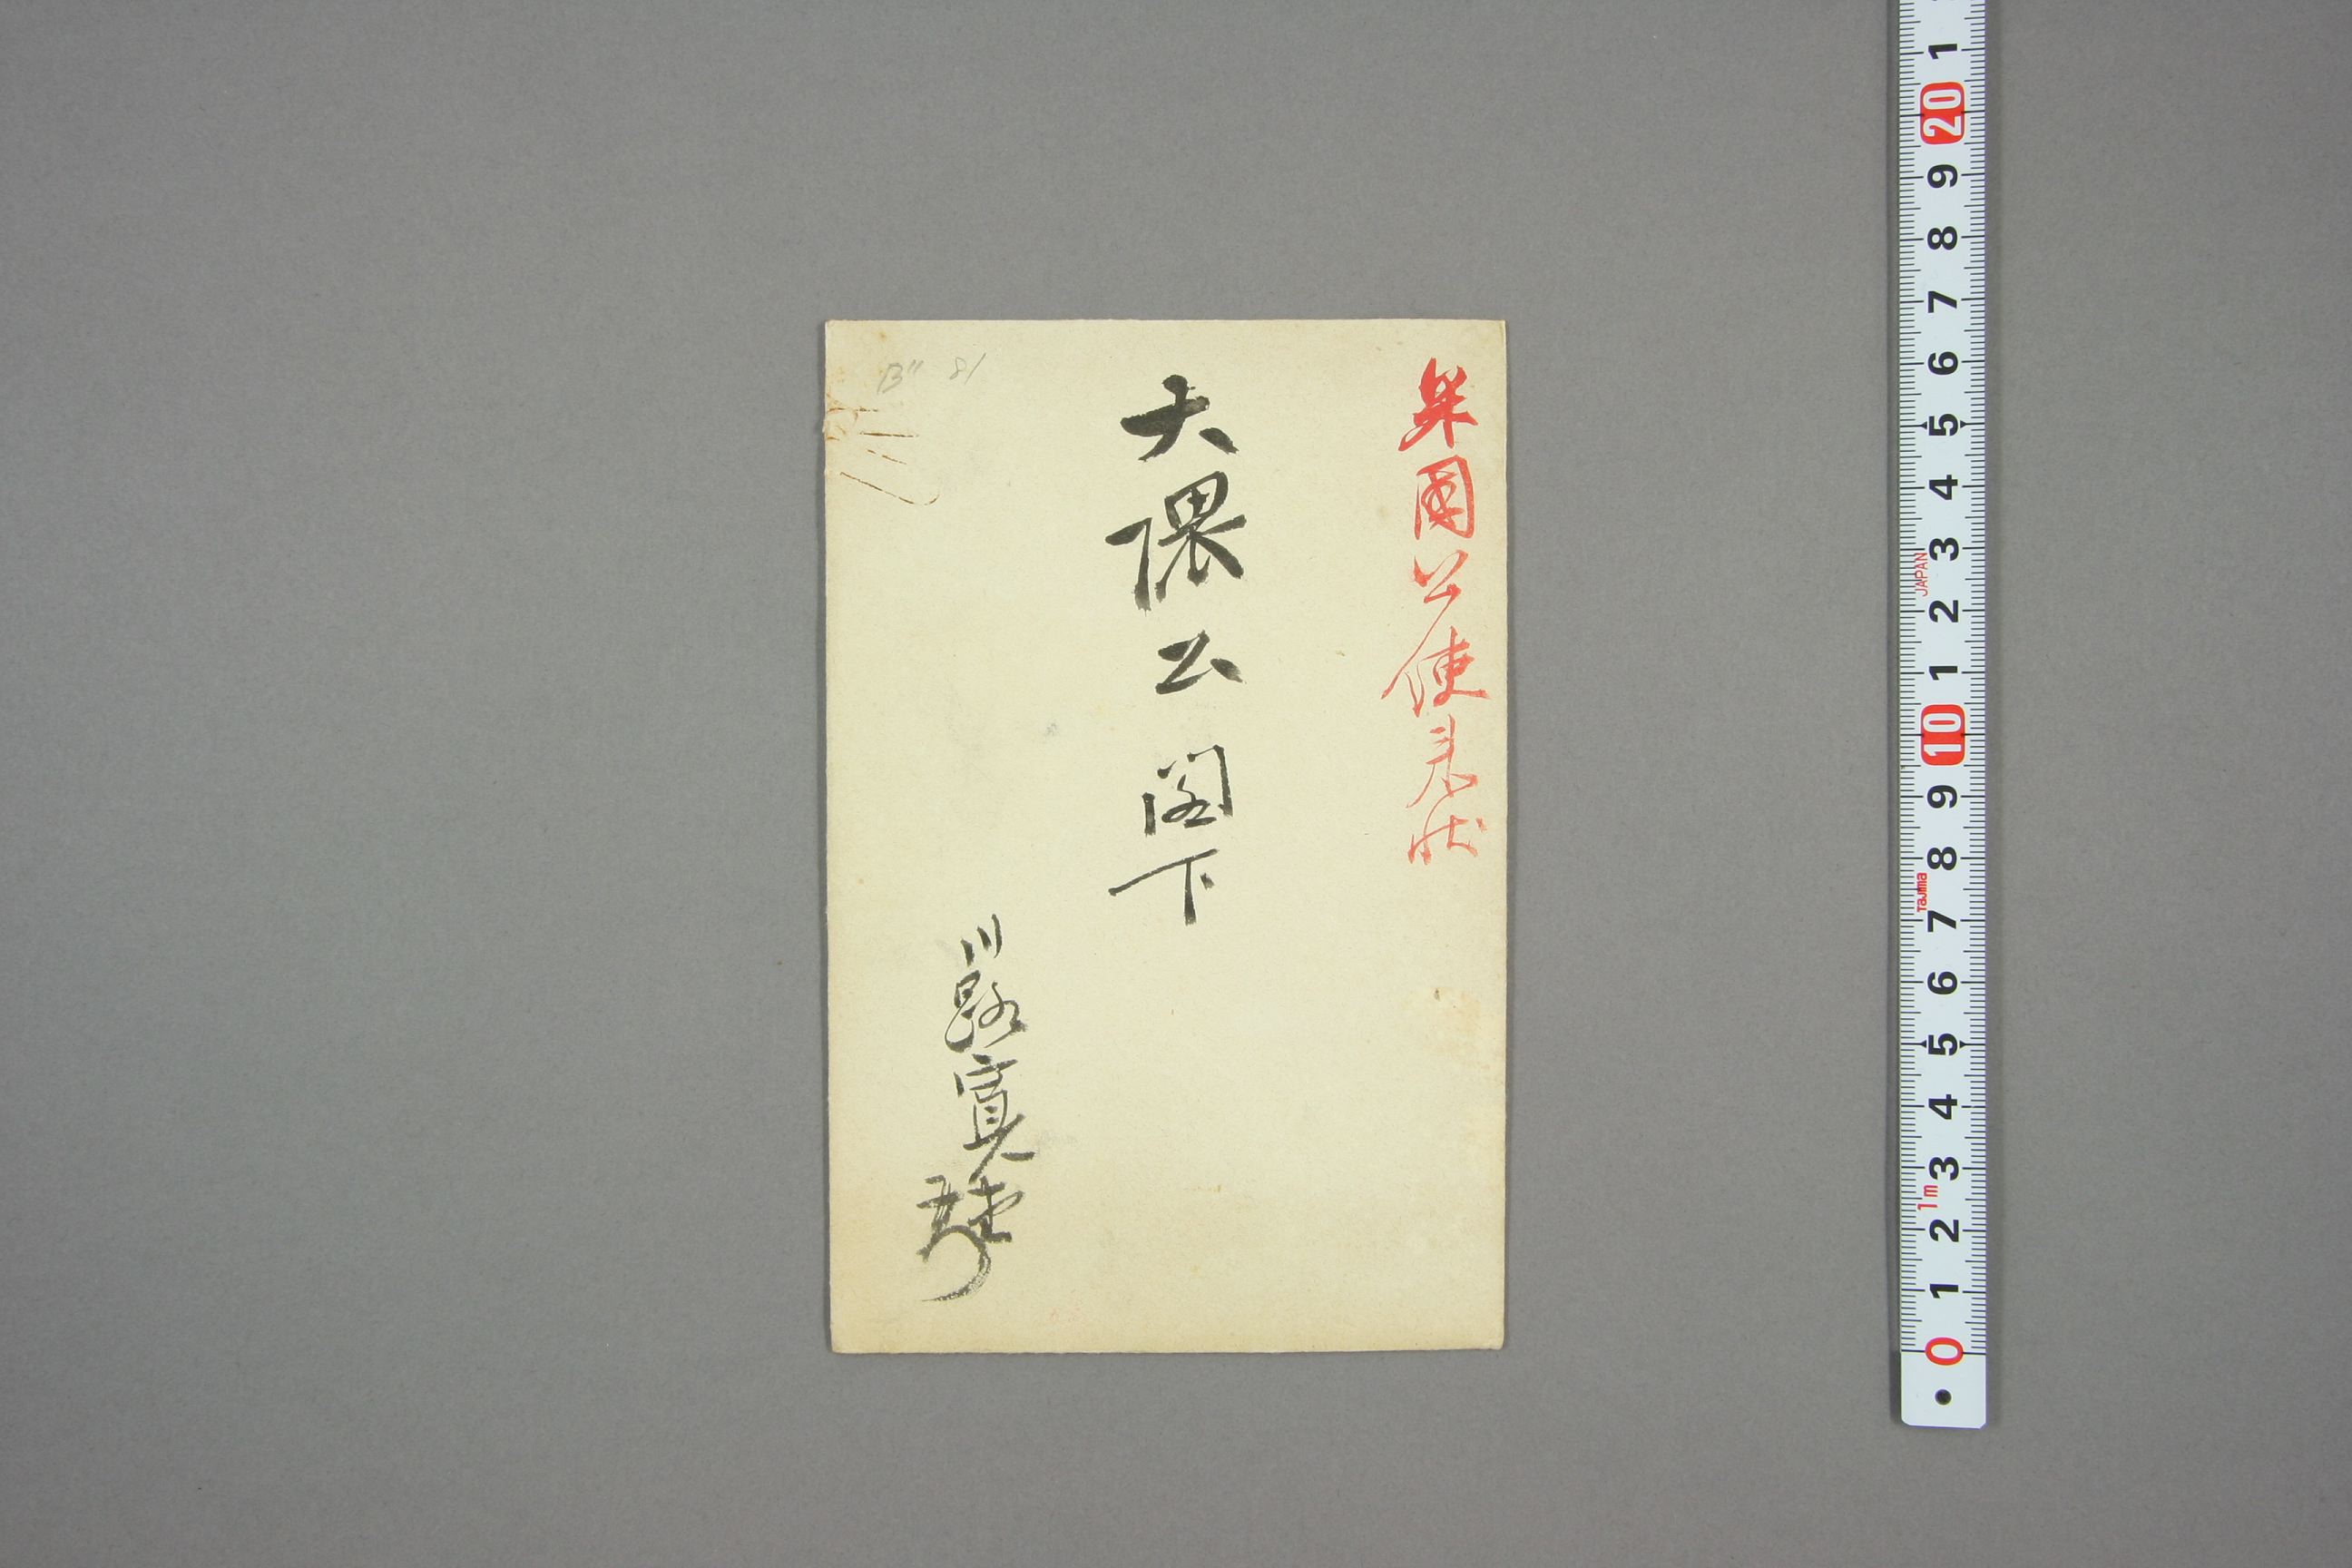 某國公使来状
大隈公閣下
川路寛堂
B" 81
1
20
9
8
7
6
5
4
3
2
1
10
9
8
7
6
5
4
3
2
1
0
JAPAN
Tajima
1m